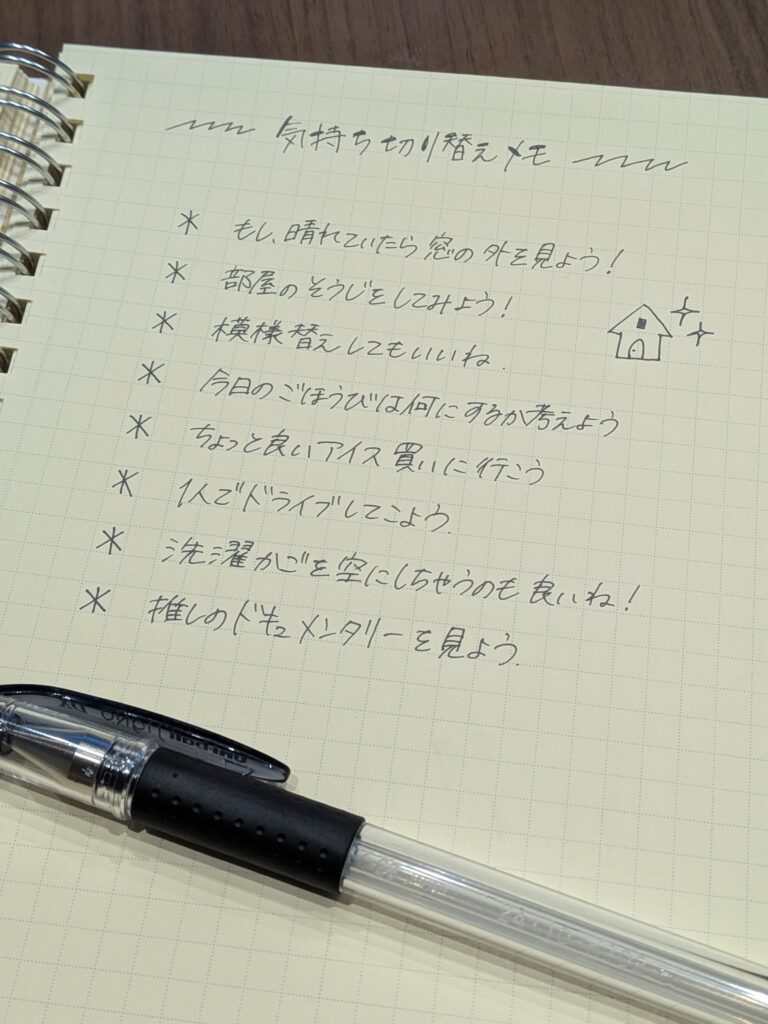 気持ち切り替えメモ
* もし、晴れていたら窓の外を見よう!
* 部屋のそうじをしてみよう!
* 模様替えしてもいいね.
* 今日のごほうびは何にするか考えよう
* ちょっと良いアイス買いに行こう
* 1人でドライブしてこよう.
* 洗濯かごを空にしちゃうのも良いね!
* 推しのドキュメンタリーを見よう.
uni-ball Signo DX